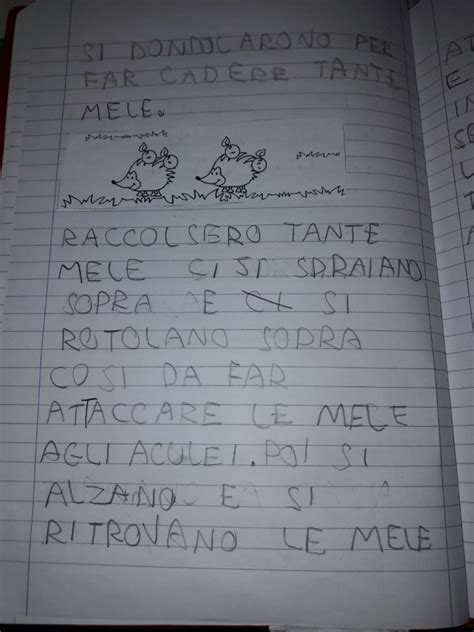 SI DONDOLARONO PER
FAR CADERE TANTE
MELE.
RACCOLSERO TANTE
MELE CI SI SDRAIANO
SOPRA E SI
ROTOLANO SOPRA
COSI DA FAR
ATTACCARE LE MELE
AGLI ACULEI. POI SI
ALZANO E SI
RITROVANO LE MELE